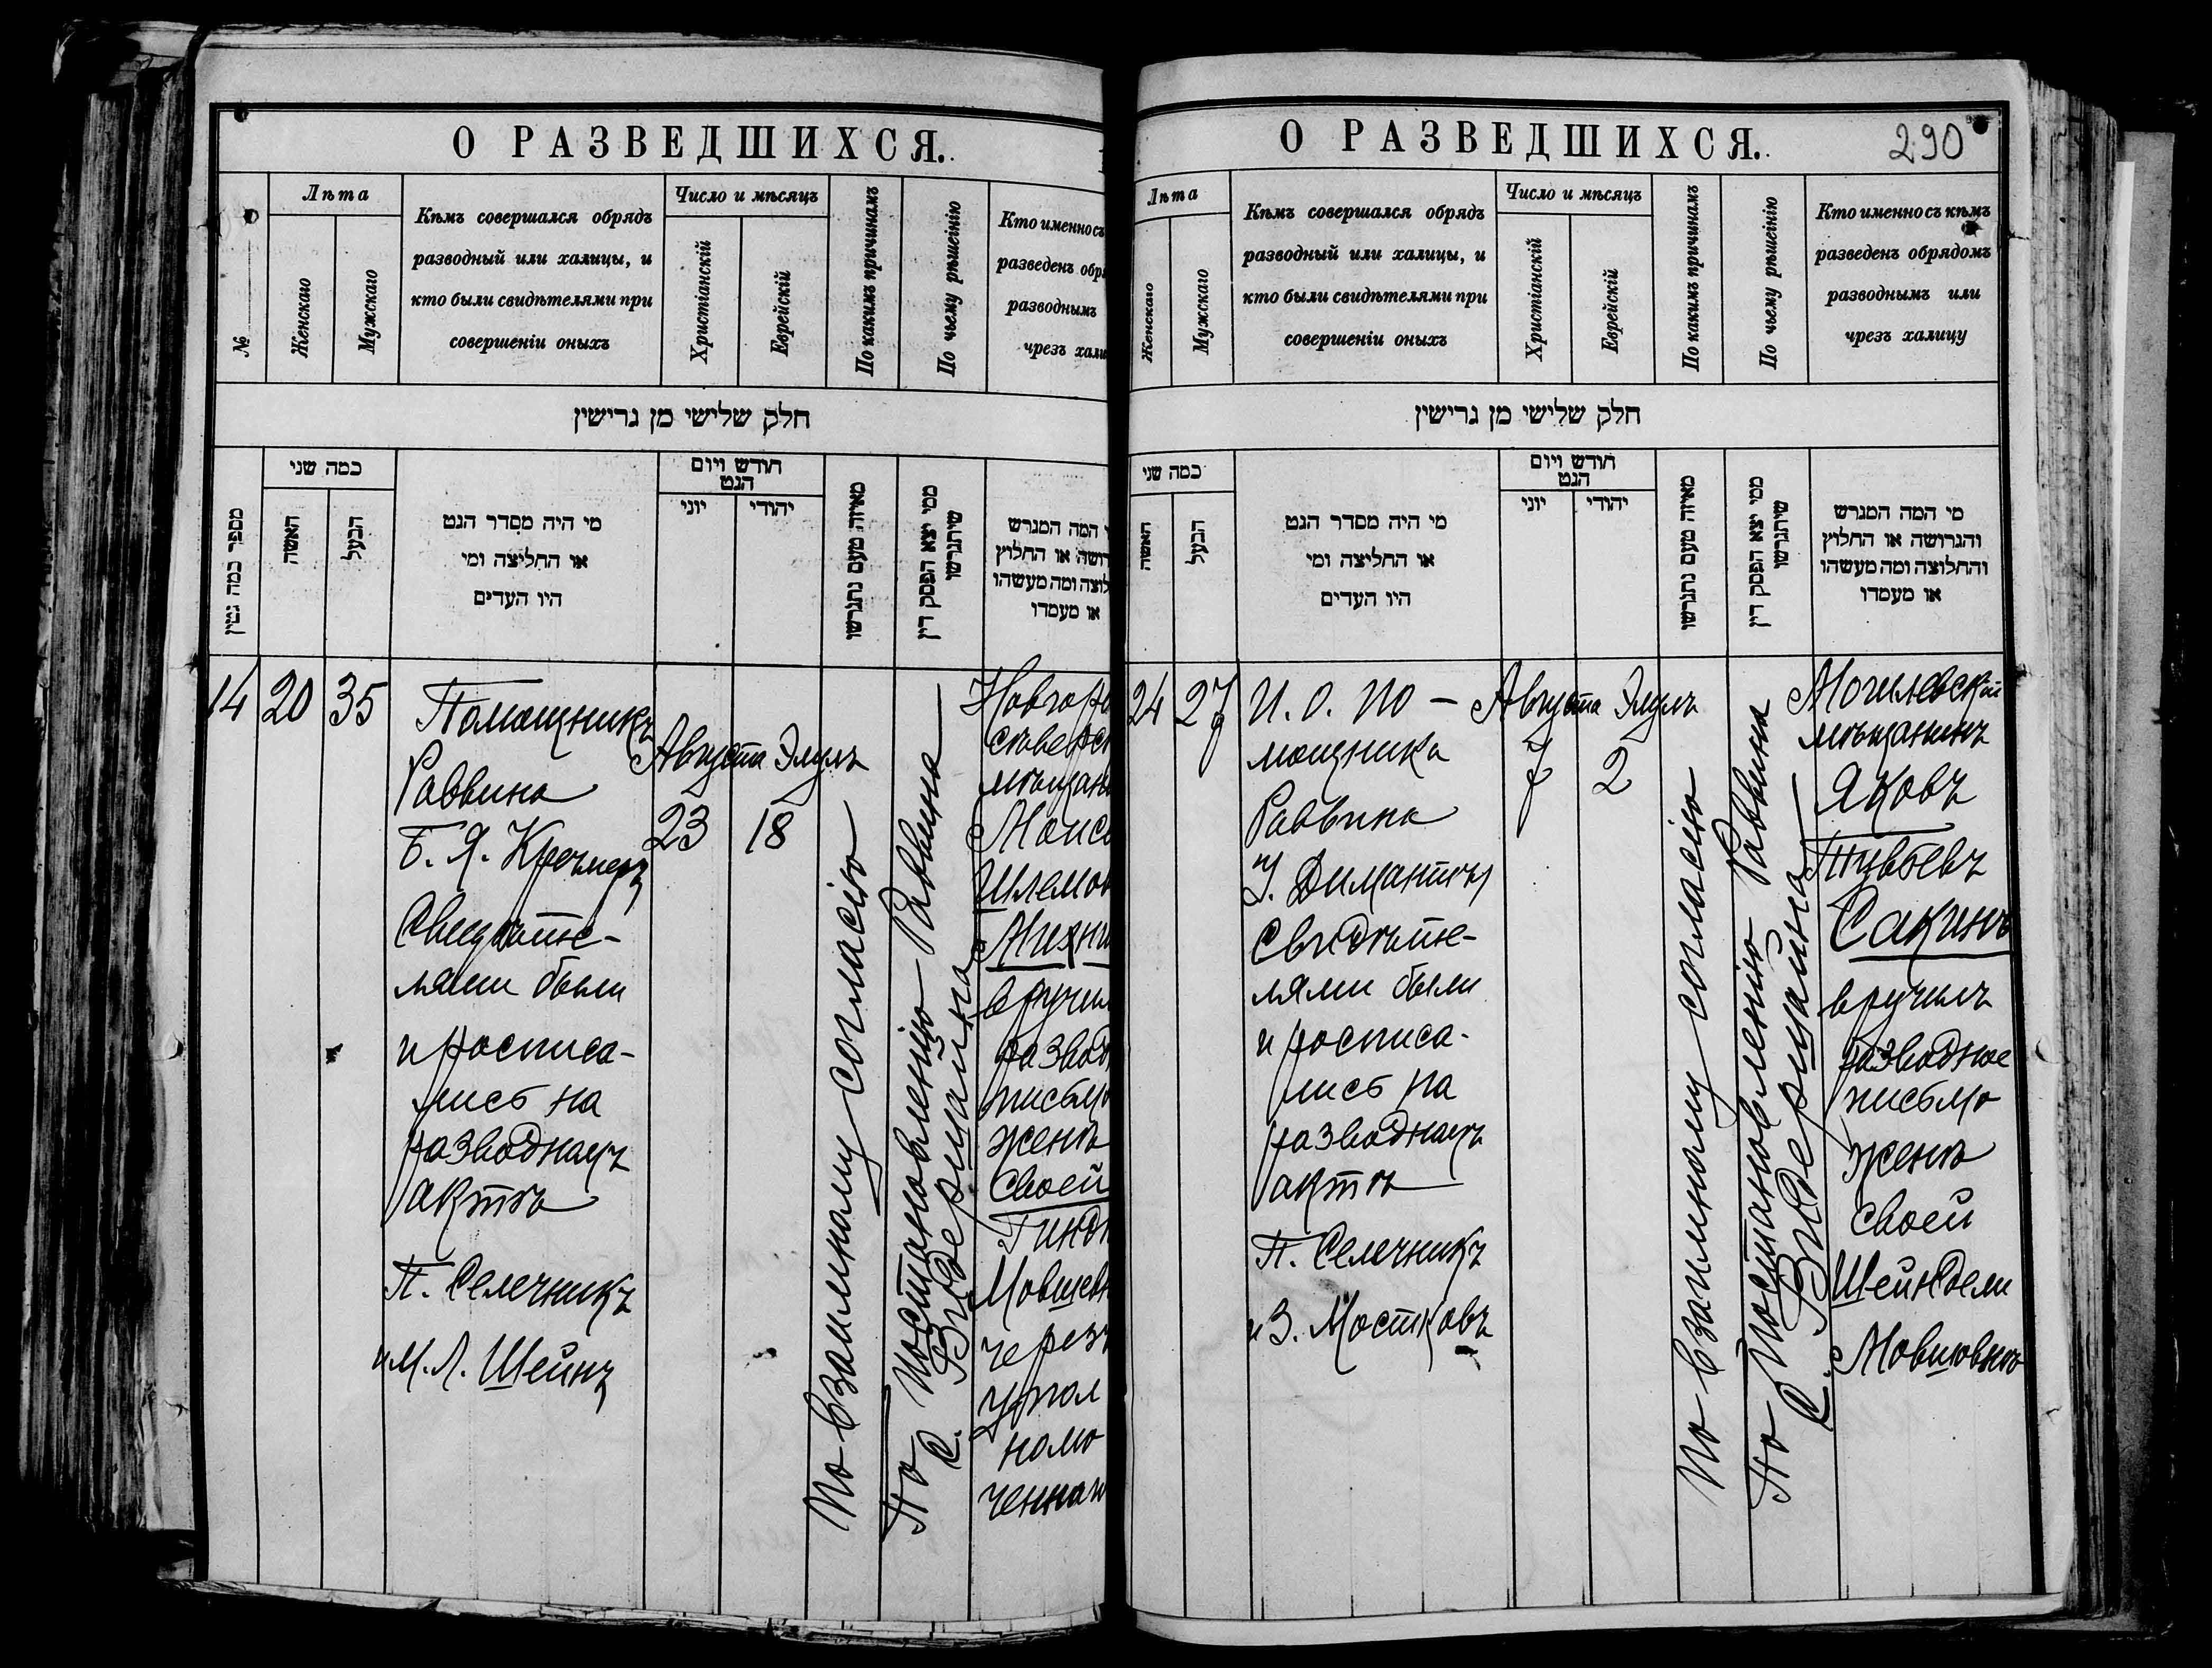 О РАЗВЕДШИХСЯ.
№
Лѣта
Женскаго
Мужскаго
Кѣмъ совершался обрядъ
разводный или халицы, и
кто были свидѣтелями при
совершеніи оныхъ
Число и мѣсяцъ
Христіанскій
Еврейскій
По какимъ причинамъ
По чьему рѣшенію
Кто именно съ
разведенъ обр
разводнымъ
чрезъ хали
חלק שלישי מן גרישין
מספר כמה גטין
כמה שני
האשה
הבעל
מי היה מסדר הגט
או החליצה ומי
היו העדים
חודש ויום
הגט
יוני
יהודי
מאיזה טעם נתגרשו
ממי יצא הפסק דין
שיתגרשו
המה המגרש
רושה או החלוץ
לוצה ומה מעשהו
או מעמדו
14
20
35
Помощникъ
Раввина
Б. Я. Кречмеръ
Свидѣте-
лями были
и росписа-
лись на
разводномъ
актѣ
П. Селечникъ
и М. Л. Шейнъ
Августа
23
Элулъ
18
По взаимному согласію
По постановленію Раввина
С. Видершайна
Новгоро
сѣверск
мѣщани
Моисе
Шлемов
Михни
вручил
развод
письмо
женѣ
своей
Гинд
Мовшевн
черезъ
упол
номо
ченнаго
О РАЗВЕДШИХСЯ.
290
Лѣта
Женскаго
Мужскаго
Кѣмъ совершался обрядъ
разводный или халицы, и
кто были свидѣтелями при
совершеніи оныхъ
Число и мѣсяцъ
Христіанскій
Еврейскій
По какимъ причинамъ
По чьему рѣшенію
Кто именно съ кѣмъ
разведенъ обрядомъ
разводнымъ или
чрезъ халицу
חלק שלישי מן גרישין
כמה שני
האשה
הבעל
מי היה מסדר הגט
או החליצה ומי
היו העדים
חודש ויום
הגט
יוני
יהודי
מאיזה טעם נתגרשו
ממי יצא הפסק דין
שיתגרשו
מי המה המגרש
והגרושה או החלוץ
והחלוצה ומה מעשהו
או מעמדו
24
27
И. О. По-
мощника
Раввина
Димантъ
Свидѣте-
лями были
и росписа-
лись на
разводномъ
актѣ
П. Селечникъ
и З. Мостковъ
Августа
7
Элулъ
2
По взаимному согласію
По постановленію Раввина
С. Видершайна
Могилевскій
мѣщанинъ
Яковъ
Тувьевъ
Сакинъ
вручилъ
разводное
письмо
женѣ
своей
Шейндели
Мовшовнѣ